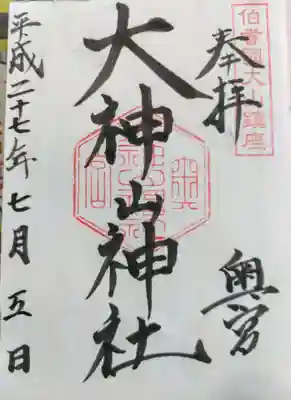 伯耆国大山鎮座
奉拝
奥宮
大神山神社
平成二十七年七月五日